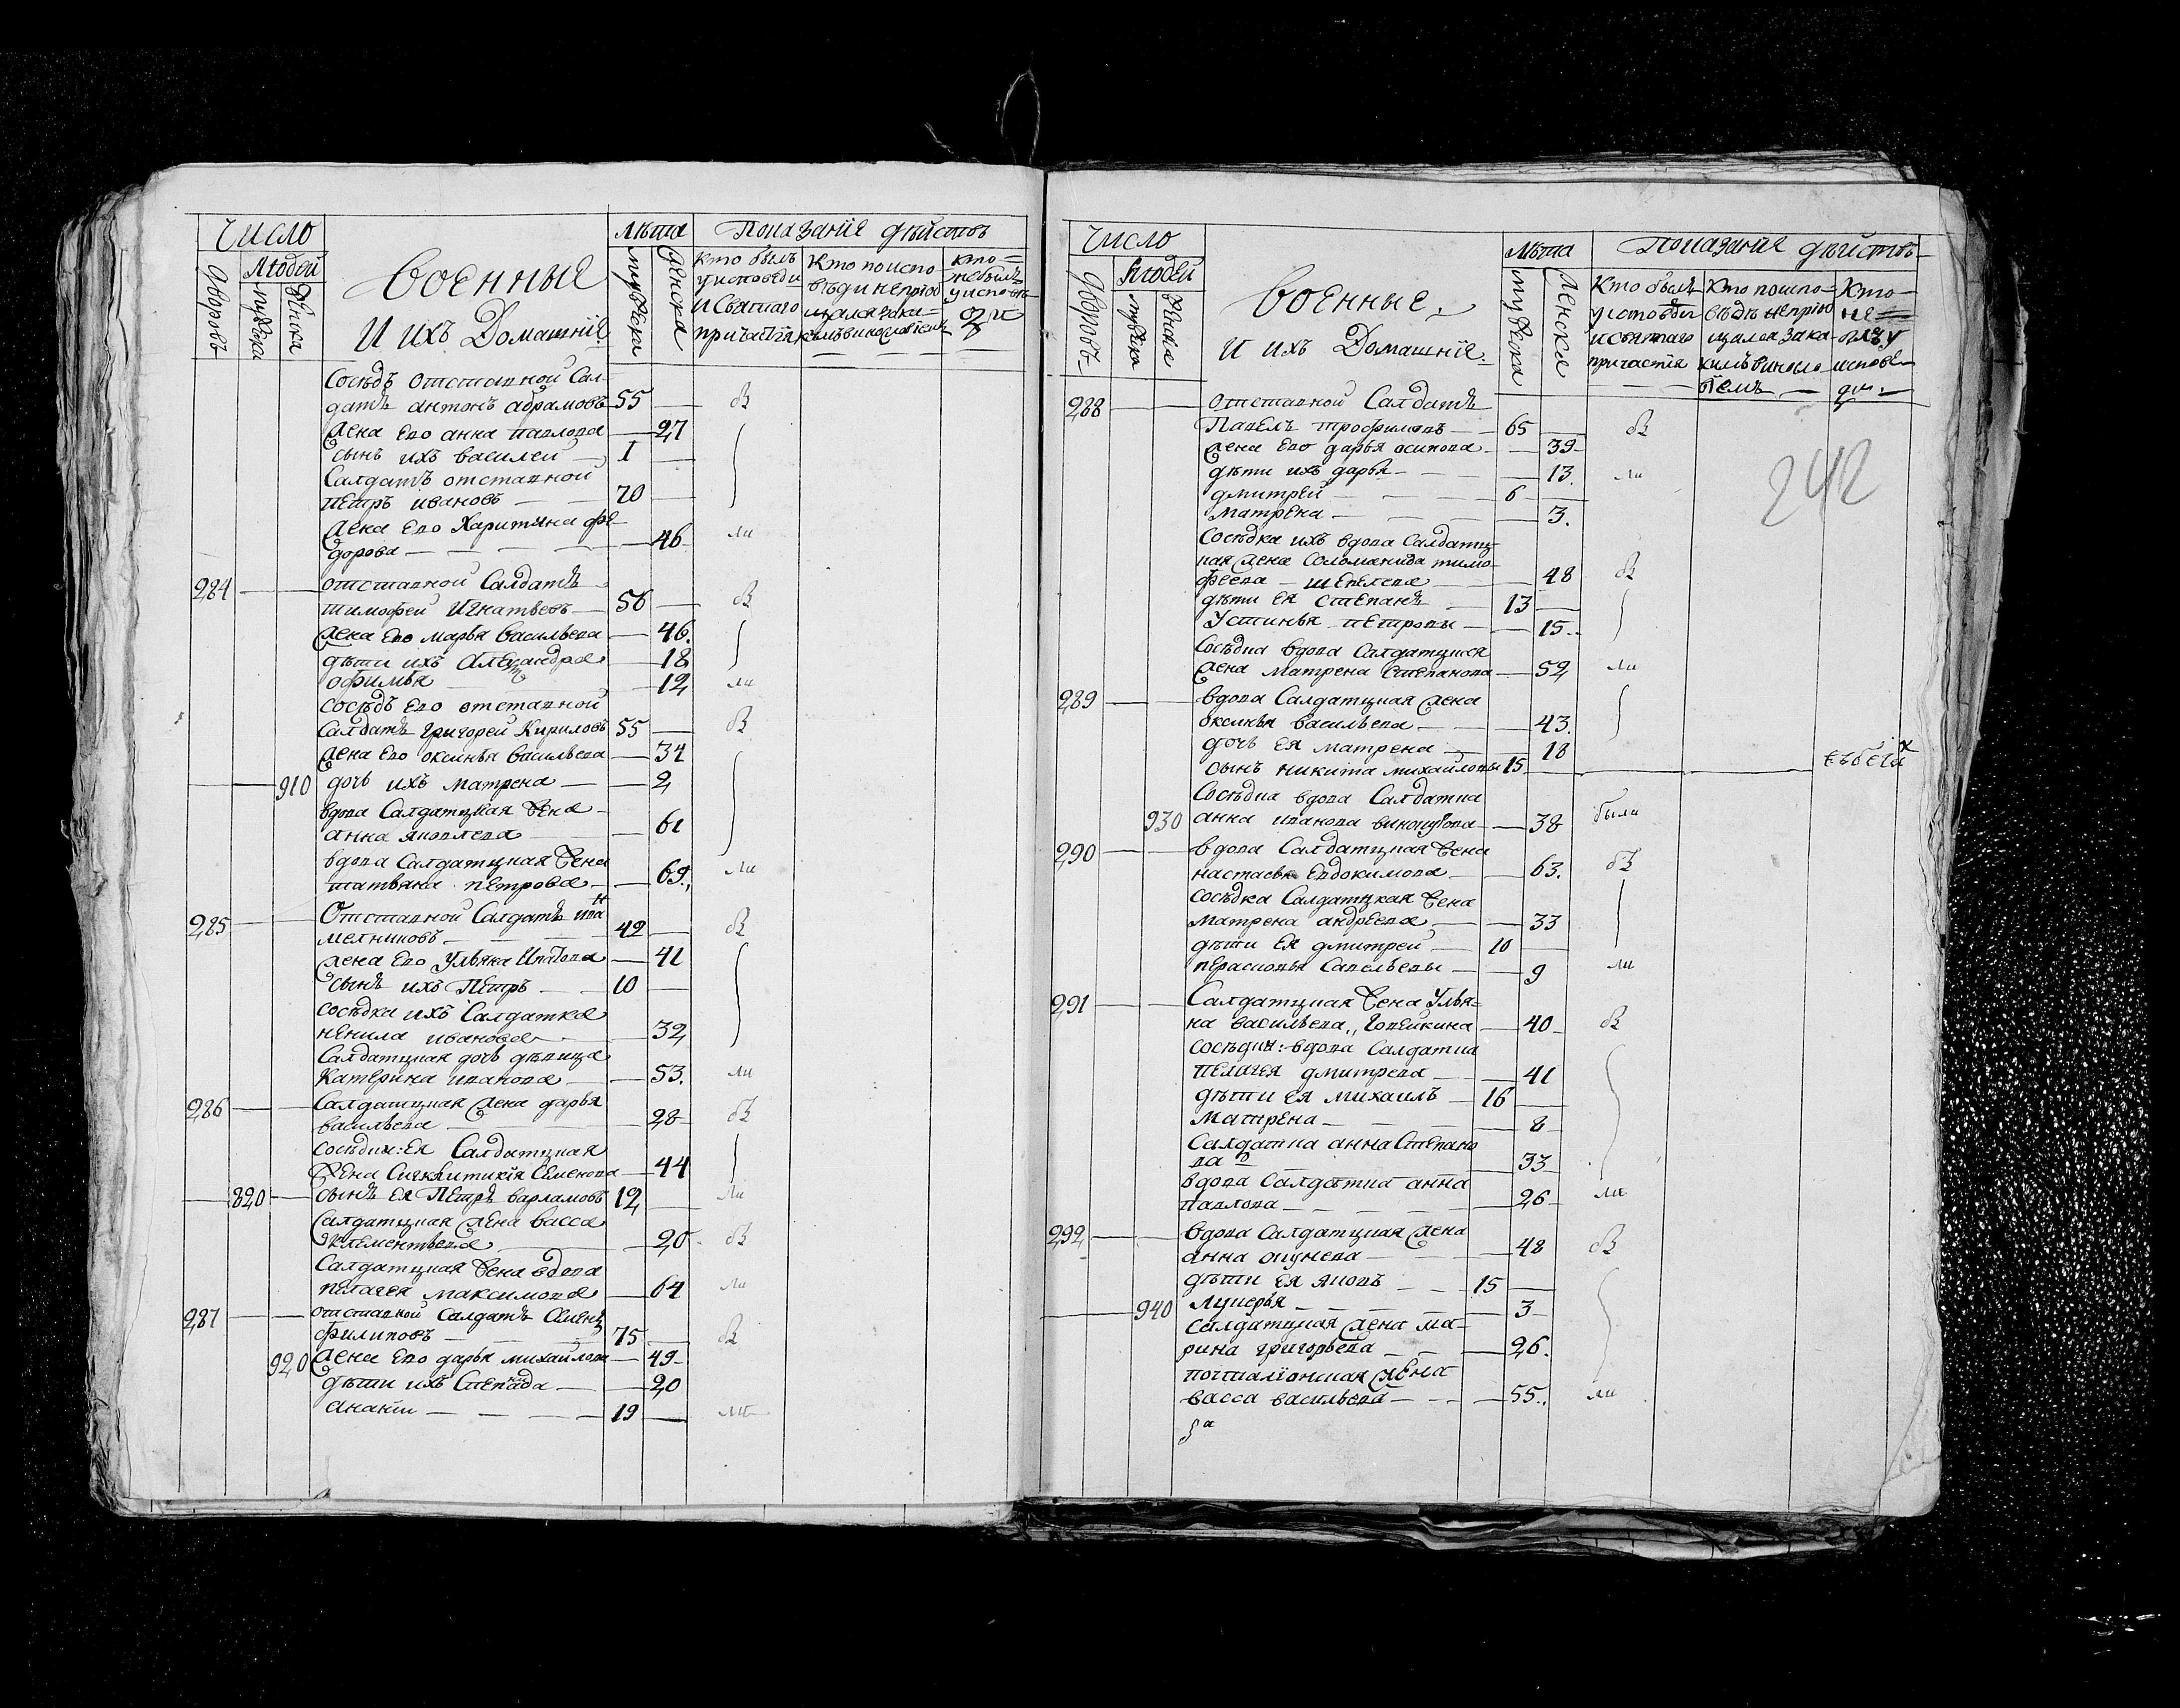 Число
Военные
И ихъ Домашнїе
Лѣта
Показанїе дѣйствъ
Дворовъ
Людей
мужеска
женска
мужеска
женска
Кто былъ
у исповеди
И Святаго
причастїя
Кто по испо
вѣди непрїоб
щался
кто
не былъ
Сосѣдъ отставной Сал-
датъ антонъ абрамовъ 55
жена ево анна павлова 27
сынъ ихъ василеи 1
Салдатъ отставной
петръ ивановъ 70
жена ево Харитина фе-
дорова 46 ли
284 отставной Салдатъ
тимофеи Игнатьевъ 56
жена ево марья васильева 46.
дѣти ихъ Александра 18
офимья 12 ли
сосѣдъ ево отставной
Салдатъ григорей Кириловъ 55
жена ево оксинья васильева 34
910 дочь ихъ матрена 2
вдова Салдатцкая жена
анна яковлева 61
вдова Салдатцкая жена
татьяна петрова 69. ли
285 Отставной Салдатъ ива
мелниковъ 42
жена ево Ульяна 41
сынъ ихъ Петръ 10
сосѣдка ихъ Салдатка
ненила иванова 32
Салдатцкая дочь дѣвица
Катерина иванова 53. ли
286 Салдатцкая жена дарья
васильева 28
сосѣдки: ея Салдатцкая
жена Семенова 44
820 сынъ ея Петръ варламовъ 12 ли
Салдатцкая жена васса
клементьева 20
Салдатцкая жена вдова
пелагея максимова 64 ли
287 отставной Салдатъ Семенъ
филиповъ 75
920 жена ево дарья михайлова 49
дѣти ихъ 20
19
Число
Военные.
И ихъ Домашнїе.
Лѣта
Показанїя дѣйствъ
Дворовъ
Людей
мужеска
женска
мужеска
женска
Кто былъ
у исповѣди
и святаго
причастїя
Кто по испо-
вѣдѣ непрїоб
щался
Кто
не
былъ у
исповѣ-
ди
242
288 отставной Салдатъ
Павелъ трофимовъ 65
жена ево дарья осипова 39
дѣти ихъ дарья 13. ли
дмитреи 6
матрена 3.
Сосѣдка ихъ вдова Салдатц-
кая жена Соломанида тимо-
феева шепелева 48
дѣти ея степанъ 13
Устинья петровы 15.
Сосѣдка вдова Салдатцкая
жена матрена степанова 52 ли
289 вдова Салдатцкая жена
оксинья васильева 43.
дочь ея матрена 18
сынъ никита михайловы 15
Сосѣдка вдова Салдатка
930 анна иванова 38 были
290 вдова Салдатцкая жена
настасья евдокимова 63.
сосѣдка Салдатцкая жена
матрена андреева 33
дѣти ея дмитреи 10
Савельевы 9 ли
291 Салдатцкая жена Улья-
на васильева 40
сосѣдки: вдова Салдатка
пелагея дмитрева 41
дѣти ея михаилъ 16
матрена 8
Салдатка анна степано
ва 33
вдова Салдатка анна
павлова 26
292 вдова Салдатцкая жена
анна 48
дѣти ея яковъ 15
940 лукерья 3
Салдатцкая жена ма-
рина григорьева 26.
жена
васса васильева 55. ли